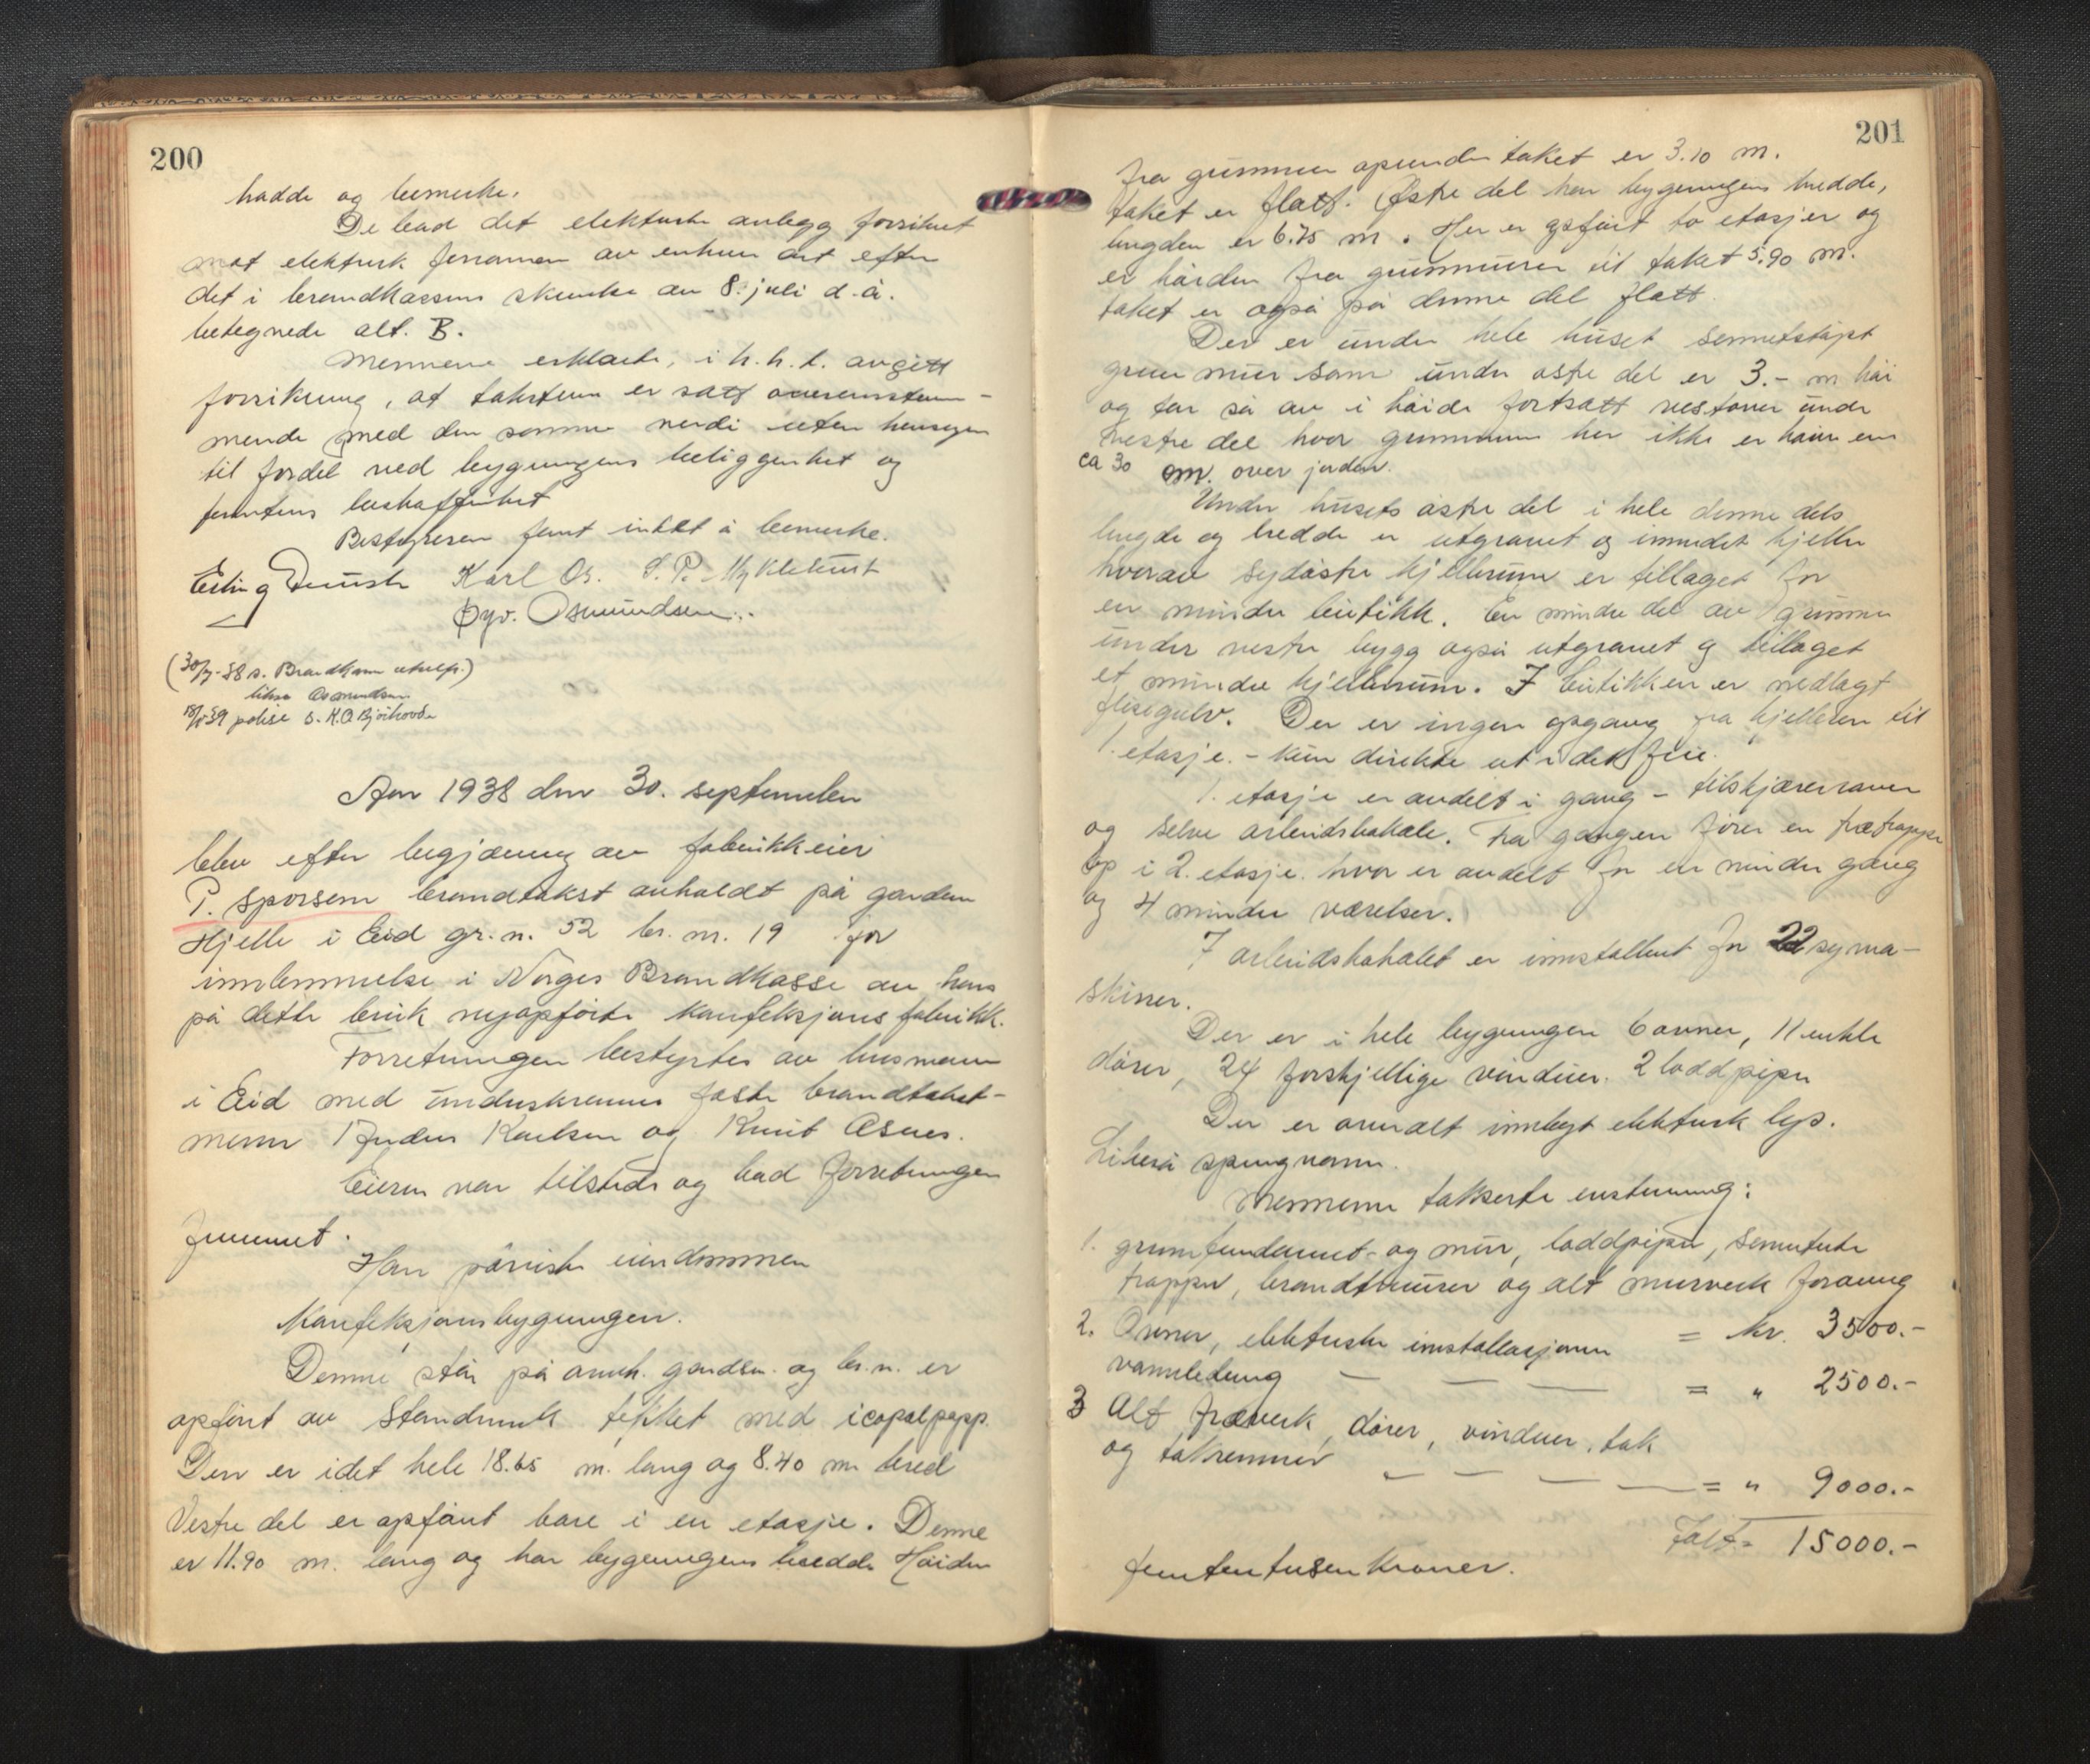 200
hadde og bemerke.
De bad det elektriske anlegg forsikret
mot elektrisk fenomen av enhver art efter
det i brandkassens skrivelse av 8. juli d.å.
betegnede alt. B.
Mennene erklærte, i h.h.t. avgitt
forsikring, at taksten er satt overensstem-
mende med den sanne verdi uten hensyn
til fordel ved bygningens beliggenhet og
tomtens beskaffenhet
Bestyreren fant intet å bemerke.
Karl Os. S. P. Myklebust
Øyv. Osmundsen
(30/9-38 s. Brandkasse utskr.)
Osmundsen
polise s. K.O. Bjørhovde
Aar 1938 den 30. september
blev efter begjæring av fabrikkeier
P. Sporsem brandtakst avholdt på garden
Hjelle i Eid gr.n. 52 br. nr. 19 for
innlemmelse i Norges Brandkasse av hans
på dette bruk nyopførte konfeksjons fabrikk.
Forretningen bestyrtes av lensmann
i Eid med underskrevne faste brandtakst-
menn Anders Karlsen og Knut Æsnes.
Eieren var tilstede og bad forretningen
fremmet.
Han påviste eiendommen
Konfeksjonsbygningen.
Denne står på omh. gardsn. og br.n. er
opført av standverk tekket med icopalpapp.
Den er i det hele 18.65 m. lang og 8.40 m bred
Vestre del er opført bare i en etasje. Denne
er 11.90 m. lang og har bygningens bredde Høiden
201
fra grunnmur opunder taket er 3.10 m.
taket er flatt. Østre del har bygningens bredde,
lengden er 6.75 m. Her er opført to etasjer og
er høiden fra grunnmuren til taket 5.90 m.
taket er også på denne del flatt.
Der er under hele huset sementstøpt
grunnmur som under østre del er 3.- m høi
og tar så av i høide fortsatt vestover under
vestre del hvor grunnmuren her ikke er høiere enn
ca 30 cm. over jorden.
Under husets østre del i hele denne dels
lengde og bredde er utgravet og innredet kjeller
hvorav sydøstre kjellerrum er tillaget for
en mindre butikk. En mindre del av grunnen
under vestre bygg også utgravet og tillaget
et mindre kjellerrum. I butikken er nedlagt
flisegulv. Der er ingen opgang fra kjelleren til
1. etasje. - kun direkte ut i det frie.
1. etasje er avdelt i gang - tilskjærerrum
og selve arbeidslokale. Fra gangen fører en trætrappe
op i 2. etasje. hvor er avdelt for en mindre gang
og 4 mindre værelser.
I arbeidslokalet er innstallert for 22 syma-
skiner.
Der er i hele bygningen 6 ovner, 11 enkle
dører, 24 forskjellige vinduer. 2 loddpiper
Der er overalt innlagt elektrisk lys.
Likeså springvann.
Mennene takserte enstemmig:
1. grunnfundament- og mur, loddpiper, sementerte
trapper, brandmurer og alt murverk foravrig
= kr. 3500.-
2. Ovner, elektriske innstallasjoner
vannledning — — — = " 2500.-
3 Alt træverk, dører, vinduer, tak
og takrenner — — — — = " 9000.-
Ialt = 15000.-
femtentusen kroner.